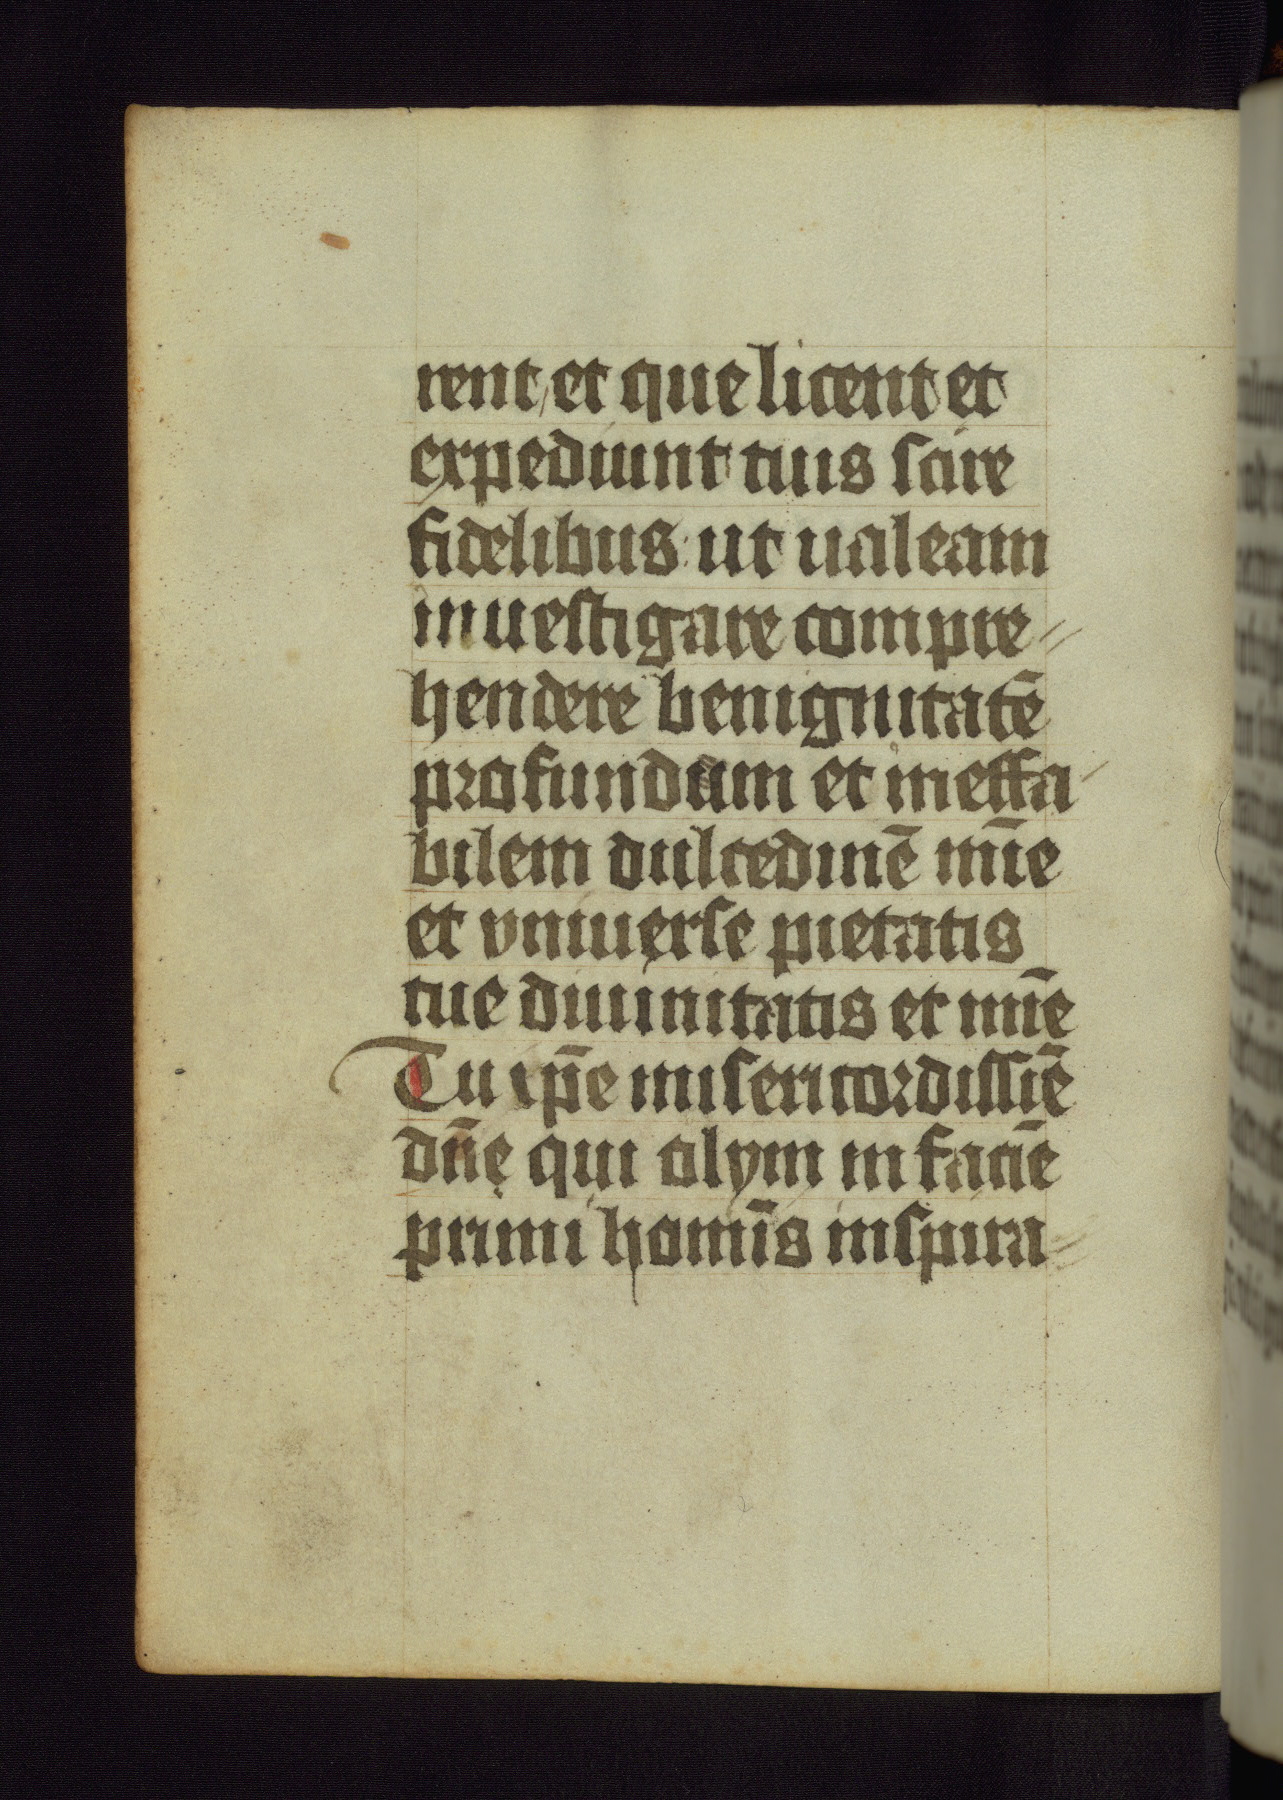 rent et que licent et
expediunt tuis scire
fidelibus: ut ualeam
inuestigare compre
hendere benignitatē
profundam et ineffa
bilem dulcedinē mīe
et vniuerse pietatis
tue diuinitatis et mīe
Tu ip̄e misericordissīe
dn̄e qui olym in faciē
primi homīs inspira